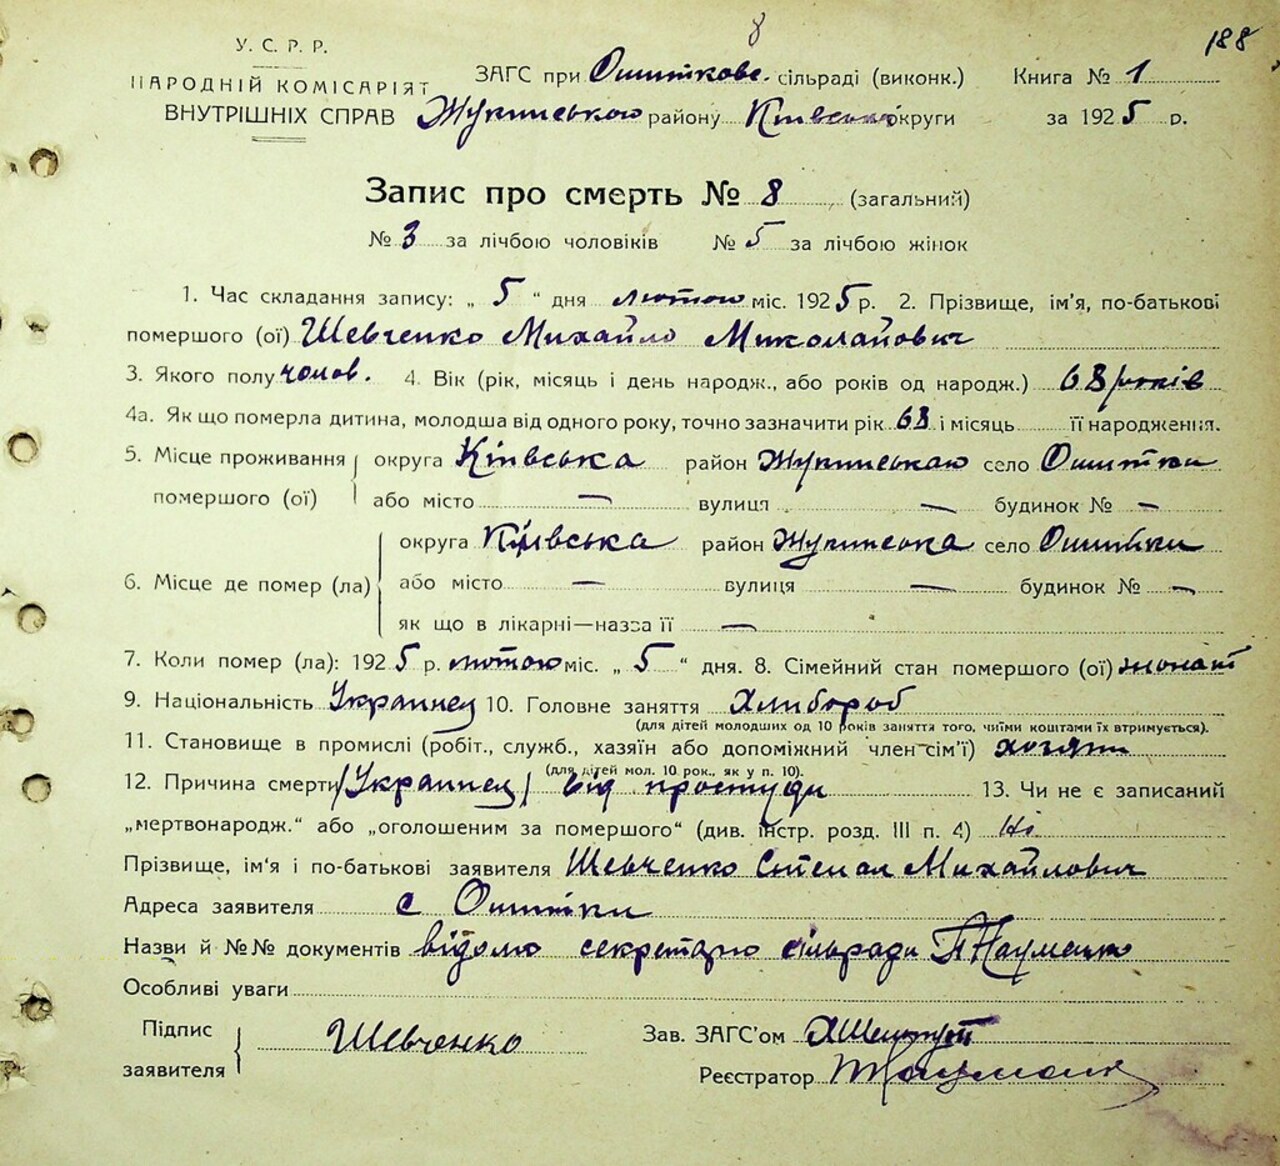 8
188
У. С. Р. Р.
НАРОДНІЙ КОМІСАРІЯТ
ВНУТРІШНІХ СПРАВ
ЗАГС при Ошиткове. сільраді (виконк.) Книга № 1
Жукинською району Київської округи за 1925 р.
Запис про смерть № 8 (загальний)
№ 3 за лічбою чоловіків № 5 за лічбою жінок
1. Час складання запису: „ 5 “ дня лютого міс. 1925 р. 2. Прізвище, ім'я, по-батькові
помершого (ої) Шевченко Михайло Миколайович
3. Якого полу чолов. 4. Вік (рік, місяць і день народж., або років од народж.) 68 років
4а. Як що померла дитина, молодша від одного року, точно зазначити рік 68 і місяць її народження.
5. Місце проживання помершого (ої) округа Київська район Жукинською село Ошитки
або місто — вулиця — будинок № —
6. Місце де помер (ла) округа Київська район Жукинська село Ошитки
або місто — вулиця — будинок № —
як що в лікарні—назва її —
7. Коли помер (ла): 1925 р. лютою міс. „ 5 “ дня. 8. Сімейний стан помершого (ої) жонат
9. Національність Украинец 10. Головне заняття Хлибороб
(для дітей молодших од 10 років заняття того, чиїми коштами їх втримується).
11. Становище в промислі (робіт., служб., хазяїн або допоміжний член сім'ї) хозяин
(для дітей мол. 10 рок., як у п. 10).
12. Причина смерти (Украинец) від простуди 13. Чи не є записаний
„мертвонародж.“ або „оголошеним за помершого“ (див. інстр. розд. III п. 4) Ні
Прізвище, ім'я і по-батькові заявителя Шевченко Степан Михайлович
Адреса заявителя с Ошитки
Назви й №№ документів відомо секретарю сільради Науменко
Особливі уваги
Підпис заявителя Шевченко
Зав. ЗАГС'ом
Реєстратор Науменко